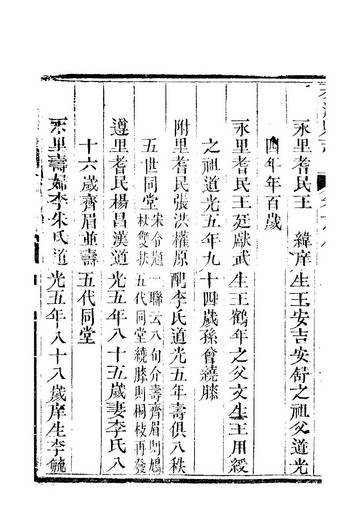 永里耆民王　緯庠生王安吉安舒之祖父道光
四年年百歲
永里耆民王廷獻武生王鶴年之父文生王用綬
之祖道光五年九十四歲孫曾繞膝
附里耆民張洪權原配李氏道光五年壽俱八秩
五世同堂宋令題一聯云八旬介壽齊眉閒鳩
杖雙扶五代同堂繞膝則桐枝再發
遵里耆民楊昌漢道光五年八十五歲妻李氏八
十六歲齊眉並壽五代同堂
永里壽婦李朱氏道光五年八十八歲庠生李毓